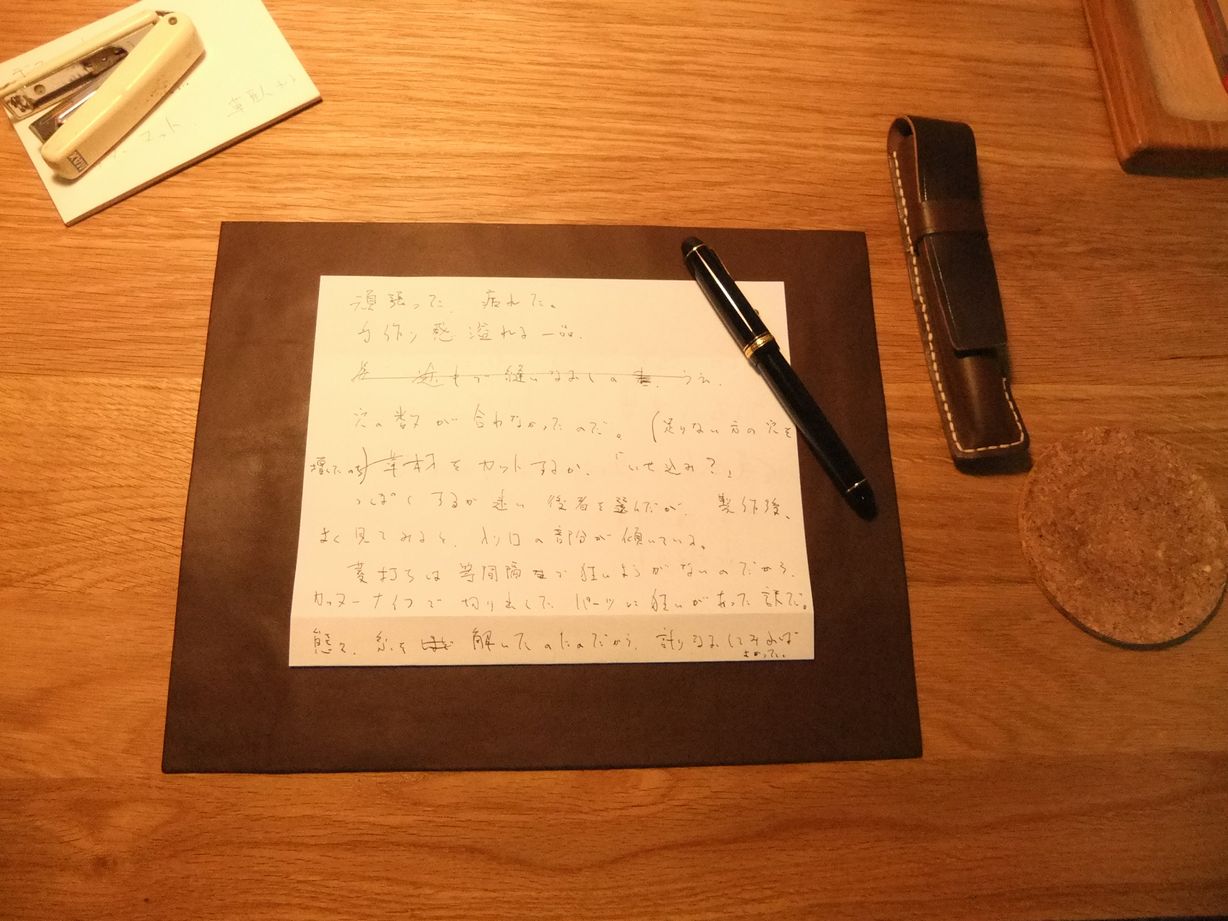 マット
MAX
頑張った、疲れた。
手作り感溢れる一品。
縫いなおしの
穴の数が合わなかったのだ。(足りない方の穴を
増したのち革材をカットするか、「いせ込み?」
っぽくするか迷い後者を選んだが、製作後、
よく見てみると、入り口の部分が傾いている。
菱打ちは等間隔で狂いようがないのだから、
カッターナイフで切り出したパーツに狂いがあった訳だ。
態々、糸を解いたのだから、計りなおしてみれば
よかった。